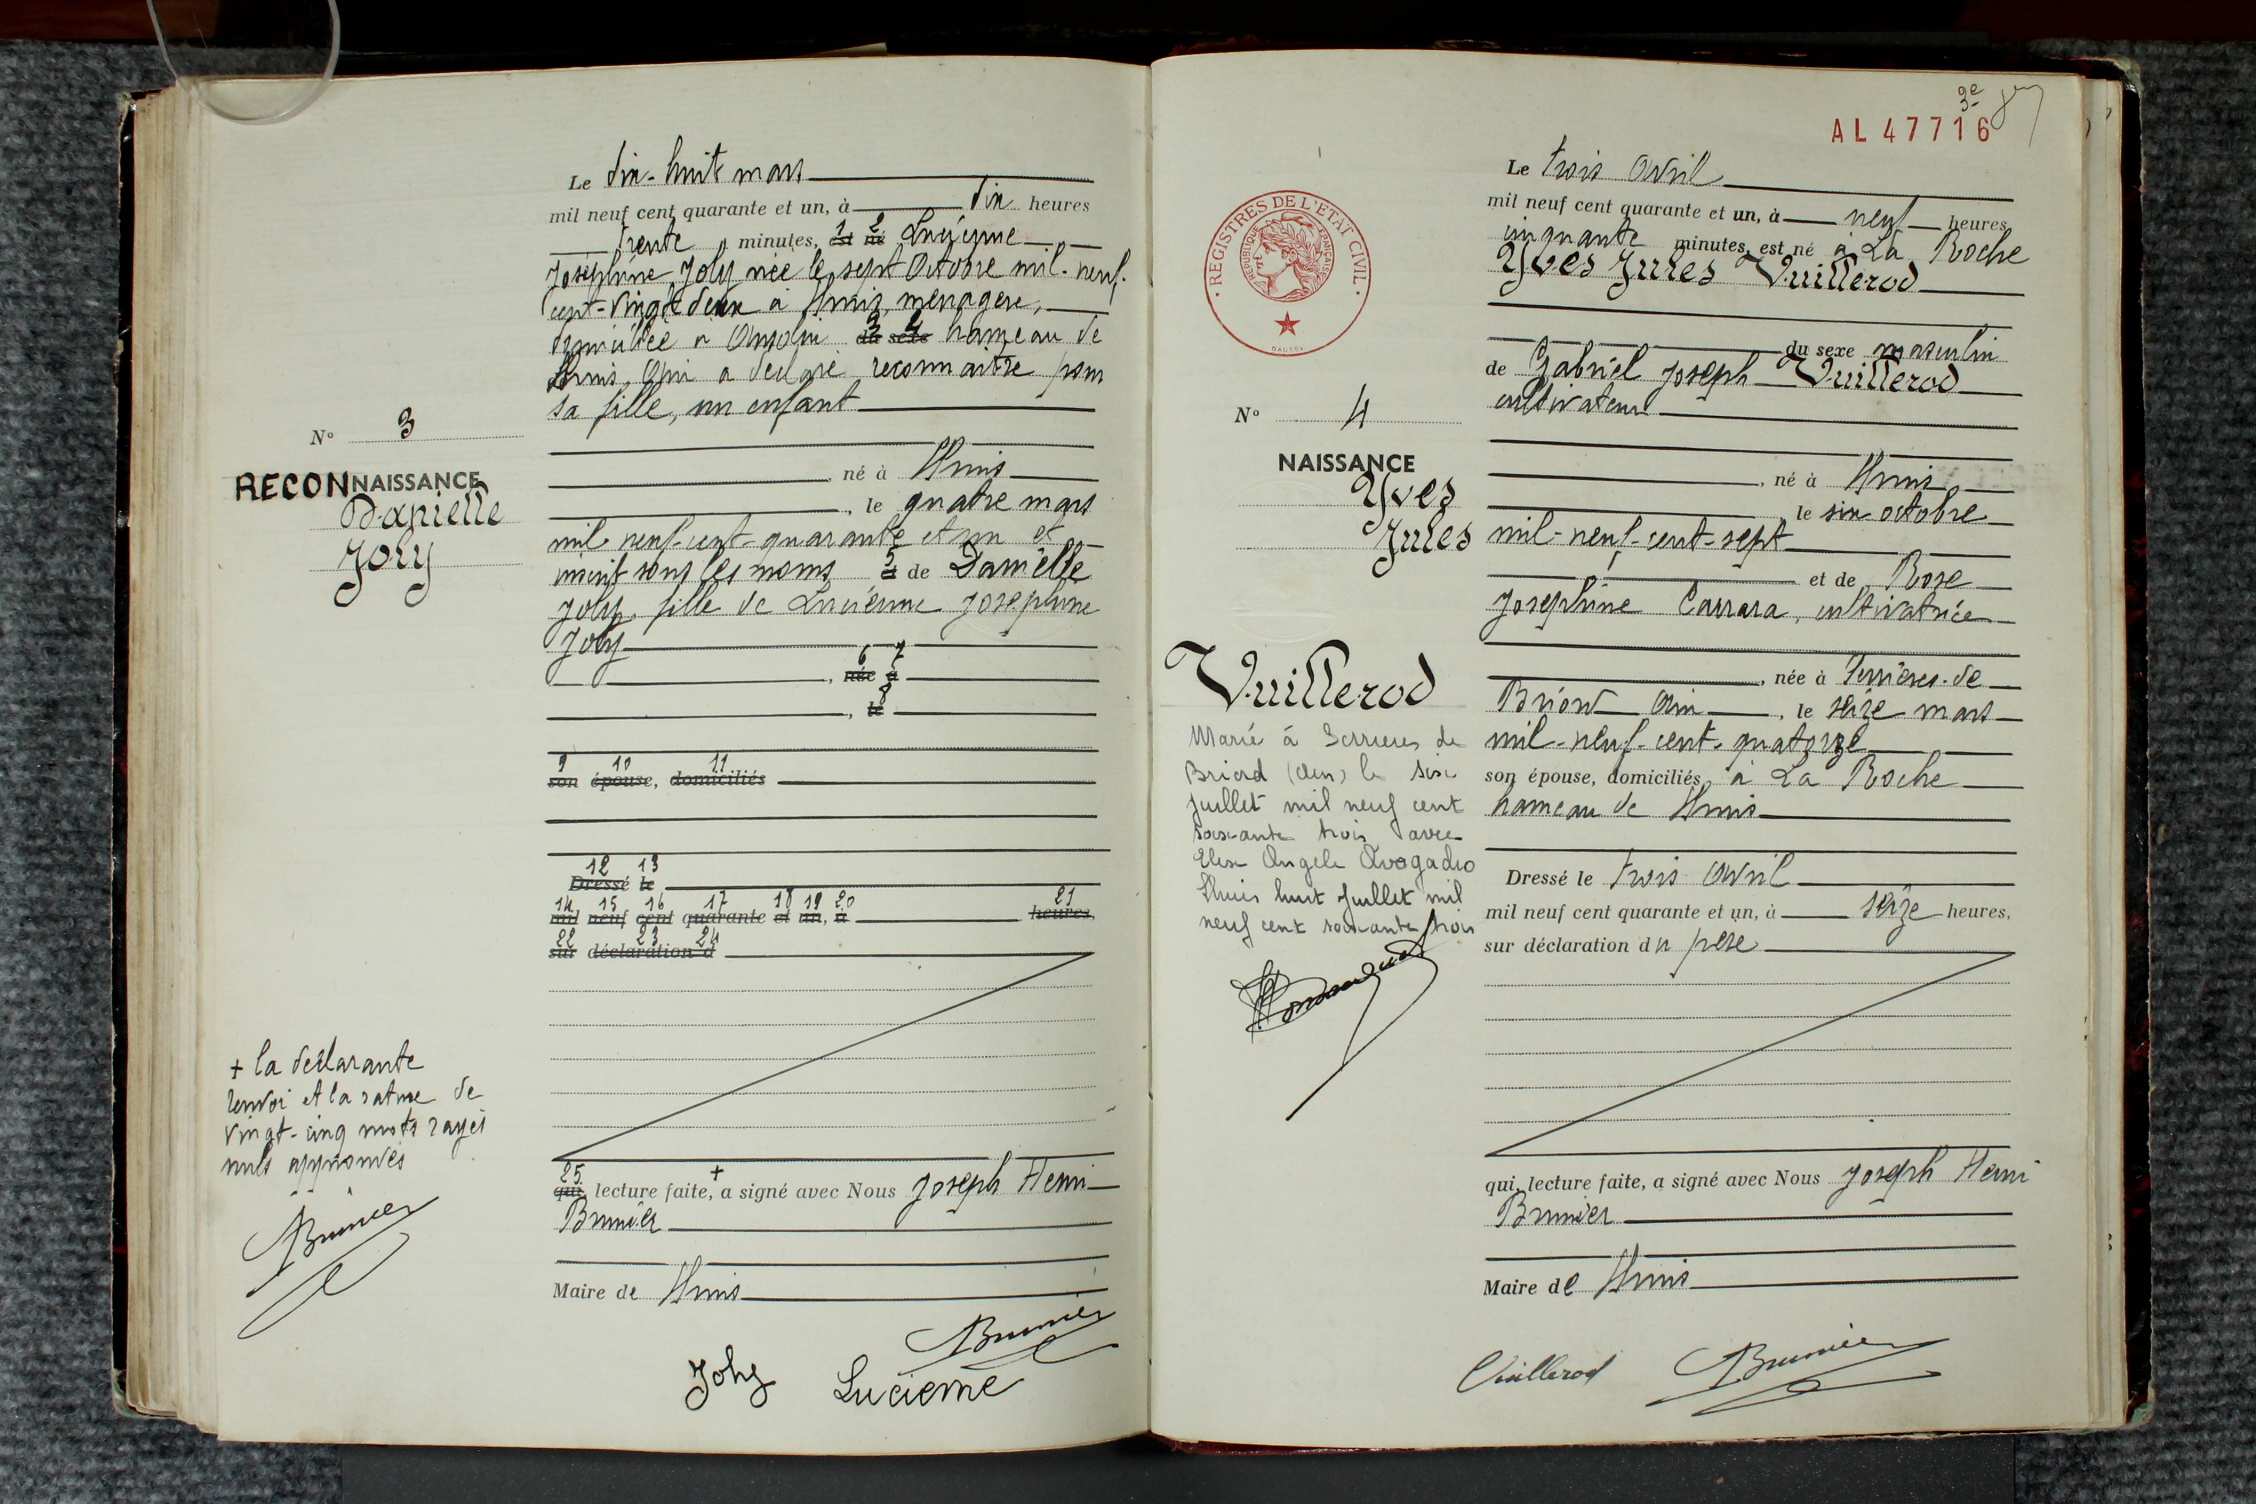 Le dix-huit mars
mil neuf cent quarante et un, à dix heures
trente minutes, 1 est 2 né Lucienne
Joséphine Joly née le sept Octobre mil-neuf-
cent-vingt-deux à Lhuis, ménagère,
domiciliée à Ansolin 3 du 4 sexe hameau de
Lhuis, qui a déclaré reconnaitre pour
sa fille, un enfant
N° 3
RECONNAISSANCE
Danielle
Joly
, né à Lhuis
, le quatre mars
mil neuf-cent-quarante et un et
inscrit sous les noms 5 et de Danièlle
Joly, fille de Lucienne Joséphine
Joly
, 6 née 7 à
, 8 le
9 son 10 épouse, 11 domiciliés
12 Dressé 13 le
14 mil 15 neuf 16 cent 17 quarante 18 et 19 un, 20 à 21 heures,
22 sur 23 déclaration 24 d
+ la déclarante
renvoi et la rature de
vingt-cinq mots rayés
nuls approuvés
Brunier
25 qui, lecture faite, + a signé avec Nous Joseph Henri
Brunier
Maire de Lhuis
Brunier
Joly Lucienne
2e
AL 47716
REGISTRES DE L'ETAT CIVIL
REPUBLIQUE FRANÇAISE
Le trois Avril
mil neuf cent quarante et un, à neuf heures
cinquante minutes, est né à La Roche
Yves Jules Vuillerod
du sexe masculin
de Gabriel Joseph Vuillerod
cultivateur
N° 4
NAISSANCE
Yves
Jules
, né à Lhuis
le six octobre
mil-neuf-cent-sept
et de Rose
Joséphine Carrara, cultivatrice
, née à Serrières-de
Briord Ain, le seize mars
mil-neuf-cent-quatorze
son épouse, domiciliés à La Roche
hameau de Lhuis
Vuillerod
Marié à Serrières de
Briord (Ain) le six
juillet mil neuf cent
soixante trois avec
Elise Angèle Avogadro
Lhuis huit Juillet mil
neuf cent soixante trois
Dressé le trois Avril
mil neuf cent quarante et un, à seize heures,
sur déclaration du père
qui, lecture faite, a signé avec Nous Joseph Henri
Brunier
Maire de Lhuis
Vuillerod Brunier